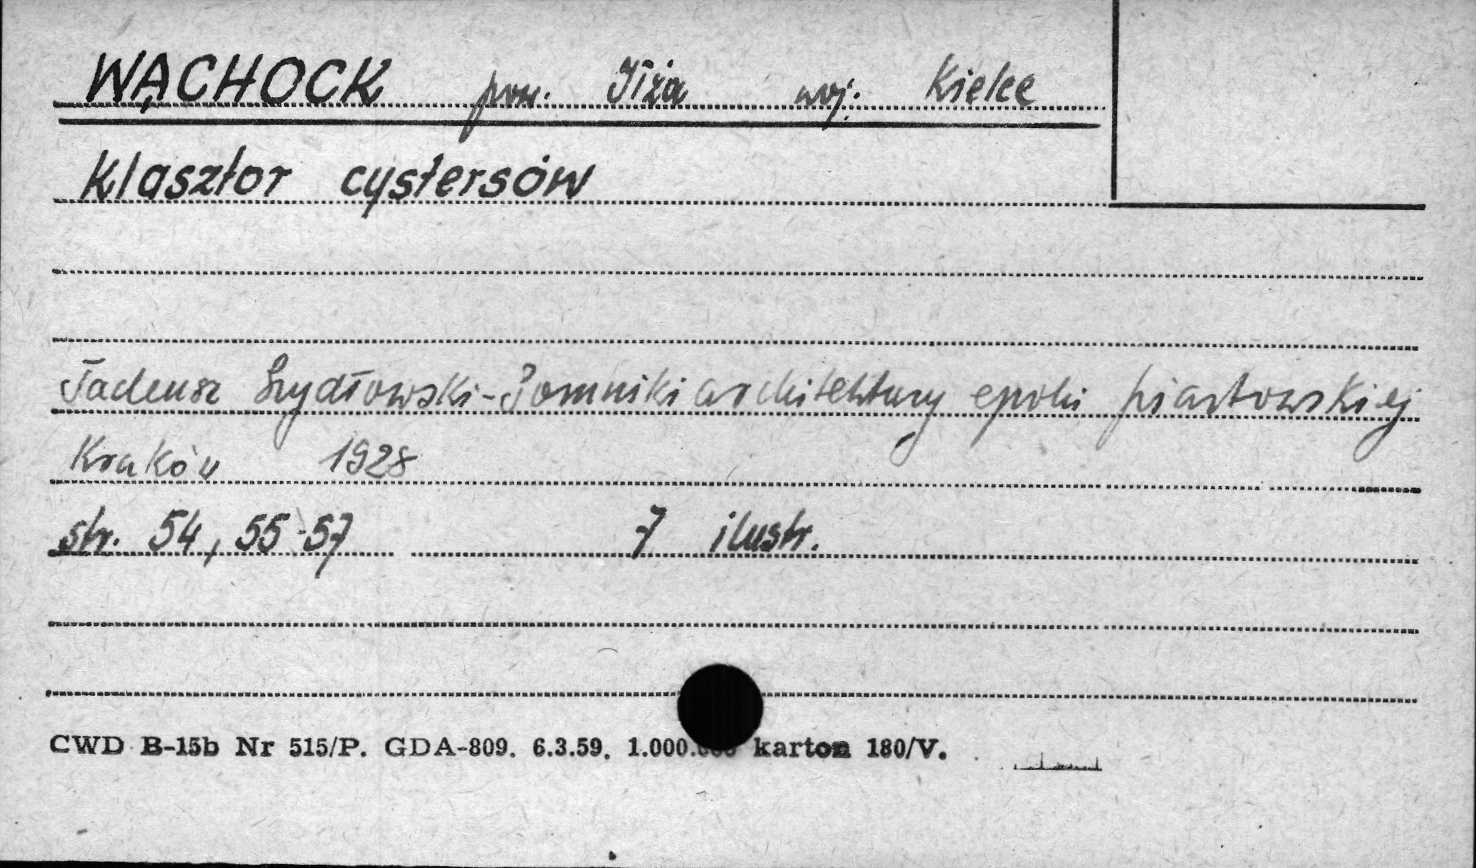 WĄCHOCK pow. Iłża woj. Kielce
Klasztor cystersów
Tadeusz Szydłowski - Pomniki architektury epoki piastowskiej
Kraków 1928
str. 54, 55-57 7 ilustr.
CWD B-15b Nr 515/P. GDA-809. 6.3.59. 1.000.000 karton 180/V.